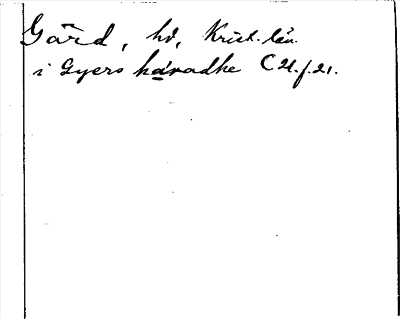 Gärd, hd, Krist. län.
i Gyers haradhe C 21. f. 21.